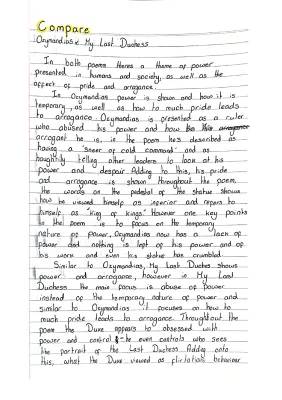 Compare
Ozymandias & My Last Duchess
In both poems theres a theme of power
presented in humans and society, as well as the
affect of pride and arrogance.
In Ozymandias power is shown and how it is
temporary, as well as how to much pride leads
to arrogance. Ozymandias is presented as a ruler
who abused his power and how
arrogant he is, in the poem he's described as
having a 'sneer of cold command' and as
haughtily telling other leaders to look at his
power and despair. Adding to this, his pride
and arrogance is shown throughout the poem,
the words on the pedestal of the statue shows
how he viewed himself as and refers to
himself as 'King of kings.' However one key points
in the poem is to focus on the temporary
nature of power, Ozymandias now has a lack of
power and nothing is left of his power and of
his work and even his statue has crumbled.
Similar to Ozymandias, My Last Duchess shows
power and arrogance, however in My Last
Duchess the main focus is abuse of power
instead of the temporary nature of power and
similar to Ozymandias it focuses on how to
much pride leads to arrogance. Throughout the
poem the Duke appears to obsessed with
power and control - he even controls who sees
the portrait of the Last Duchess. Adding onto
this, what the Duke viewed as flirtatious behaviour